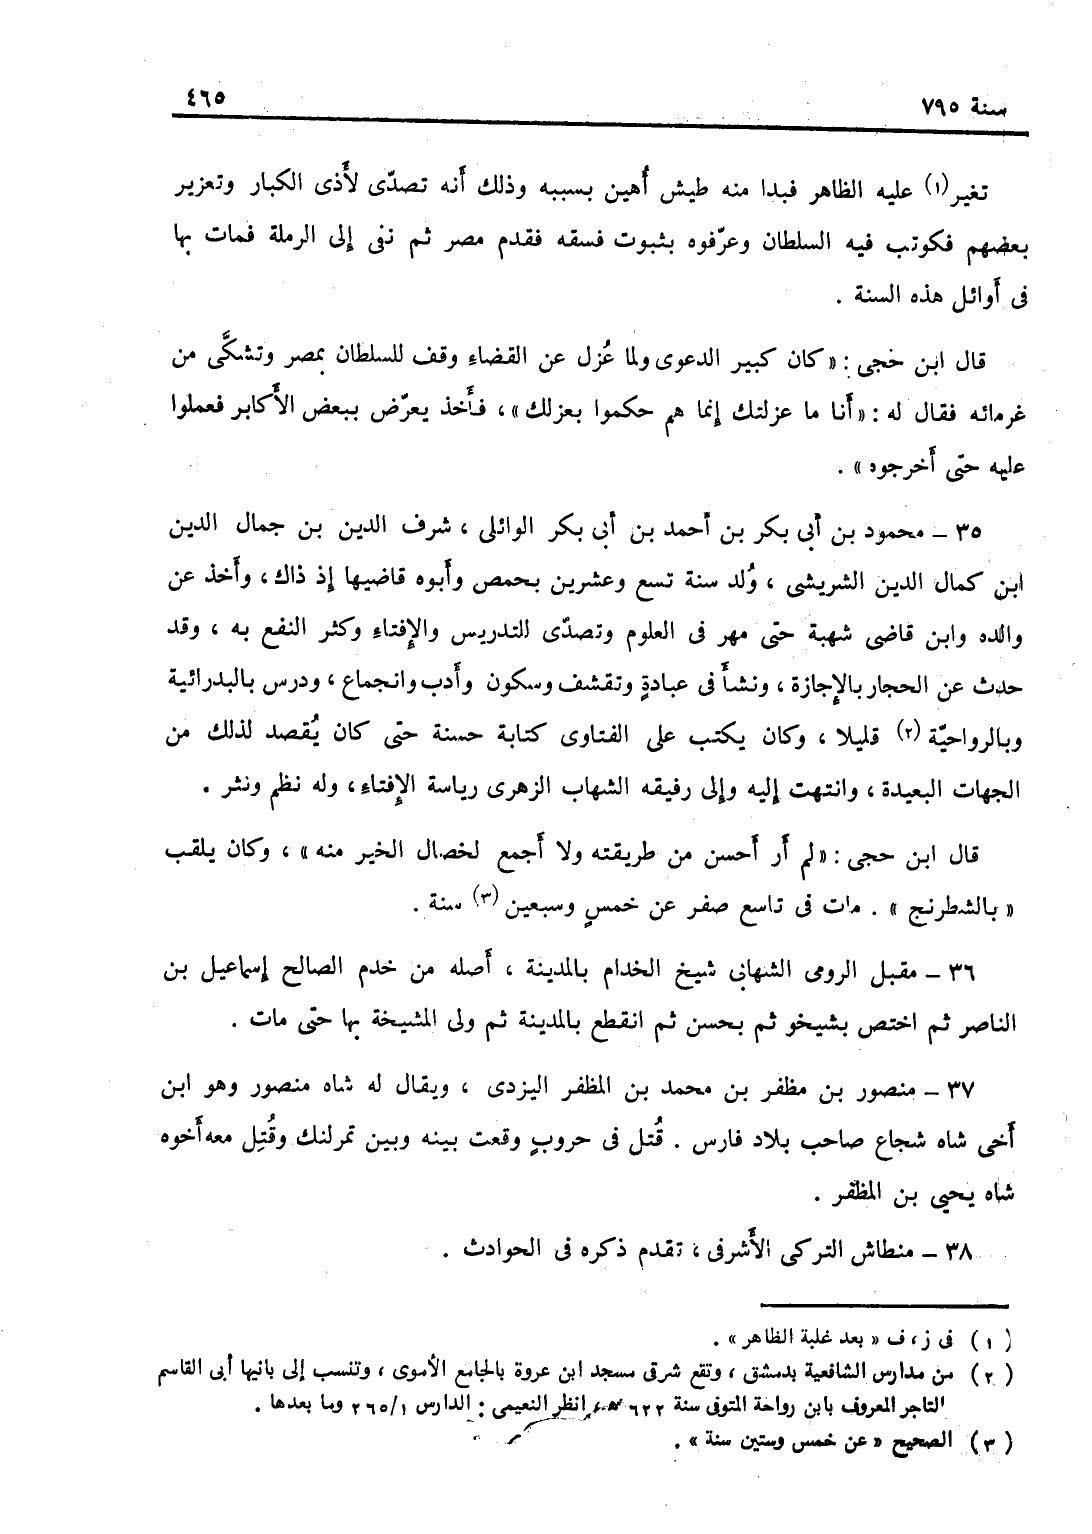 سنة ٧٩٥
٤٦٥
تغير(١) عليه الظاهر فبدا منه طيش أُهين بسببه وذلك أَنه تصدّى لأَذى الكبار وتعزير
بعضهم فكوتب فيه السلطان وعرّفوه بثبوت فسقه فقدم مصر ثم نفى إلى الرملة فمات بها
فى أَوائل هذه السنة .
قال ابن حجى : «كان كبير الدعوى ولما عُزل عن القضاء وقف للسلطان بمصر وتشكَّى من
غرمائه فقال له : «أَنا ما عزلتك إنما هم حكموا بعزلك» ، فأَخذ يعرّض ببعض الأَكابر فعملوا
عليه حتى أَخرجوه» .
٣٥ – محمود بن أَبى بكر بن أحمد بن أَبى بكر الوائلى ، شرف الدين بن جمال الدين
ابن كمال الدين الشريشى ، وُلد سنة تسع وعشرين بحمص وأَبوه قاضيها إذ ذاك ، وأَخذ عن
والده وابن قاضى شهبة حتى مهر فى العلوم وتصدّى للتدريس والإِفتاء وكثر النفع به ، وقد
حدث عن الحجار بالإِجازة ، ونشأَ فى عبادةٍ وتقشف وسكون وأَدب وانجماع ، ودرس بالبدرائية
وبالرواحيّة (٢) قليلا ، وكان يكتب على الفتاوى كتابة حسنة حتى كان يُقصد لذلك من
الجهات البعيدة ، وانتهت إليه وإلى رفيقه الشهاب الزهرى رياسة الإِفتاء ، وله نظم ونثر .
قال ابن حجى : «لم أَر أَحسن من طريقته ولا أَجمع لخصال الخير منه» ، وكان يلقب
« بالشطرنج » . مات فى تاسع صفر عن خمسٍ وسبعين (٣) سنة .
٣٦ – مقبل الرومى الشهابى شيخ الخدام بالمدينة ، أَصله من خدم الصالح إسماعيل بن
الناصر ثم اختص بشيخو ثم بحسن ثم انقطع بالمدينة ثم ولى المشيخة بها حتى مات .
٣٧ – منصور بن مظفر بن محمد بن المظفر اليزدى ، ويقال له شاه منصور وهو ابن
أَخى شاه شجاع صاحب بلاد فارس . قُتل فى حروبٍ وقعت بينه وبين تمرلنك وقُتِل معه أَخوه
شاه يحيى بن المظفر .
٣٨ – منطاش التركى الأَشرفى ، تقدم ذكره فى الحوادث .
( ١ ) فى ز ، ف « بعد غلبة الظاهر » .
( ٢ ) من مدارس الشافعية بدمشق ، وتقع شرقى مسجد ابن عروة بالجامع الأموى ، وتنسب إلى بانيها أبى القاسم
التاجر المعروف بابن رواحة المتوفى سنة ٦٢٢ هـ ، انظر النعيمى : الدارس ٢٦٥/١ وما بعدها .
( ٣ ) الصحيح « عن خمس وستين سنة » .